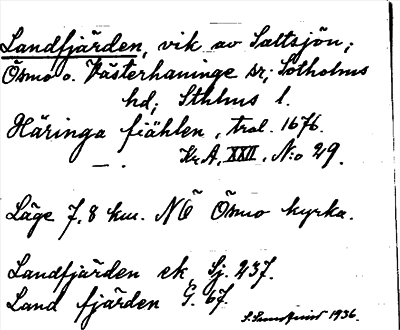 Landfjärden, vik av Saltsjön;
Ösmo o. Västerhaninge sr; Sotholms
hd; Sthlms l.
Häringa fiählen, trol. 1676.
— . Kr.A. XXII. N:o 29.
Läge 7,8 km. NÖ Ösmo kyrka.
Landfjärden ek Sj. 237.
Land fjärden G. 67.
1936.